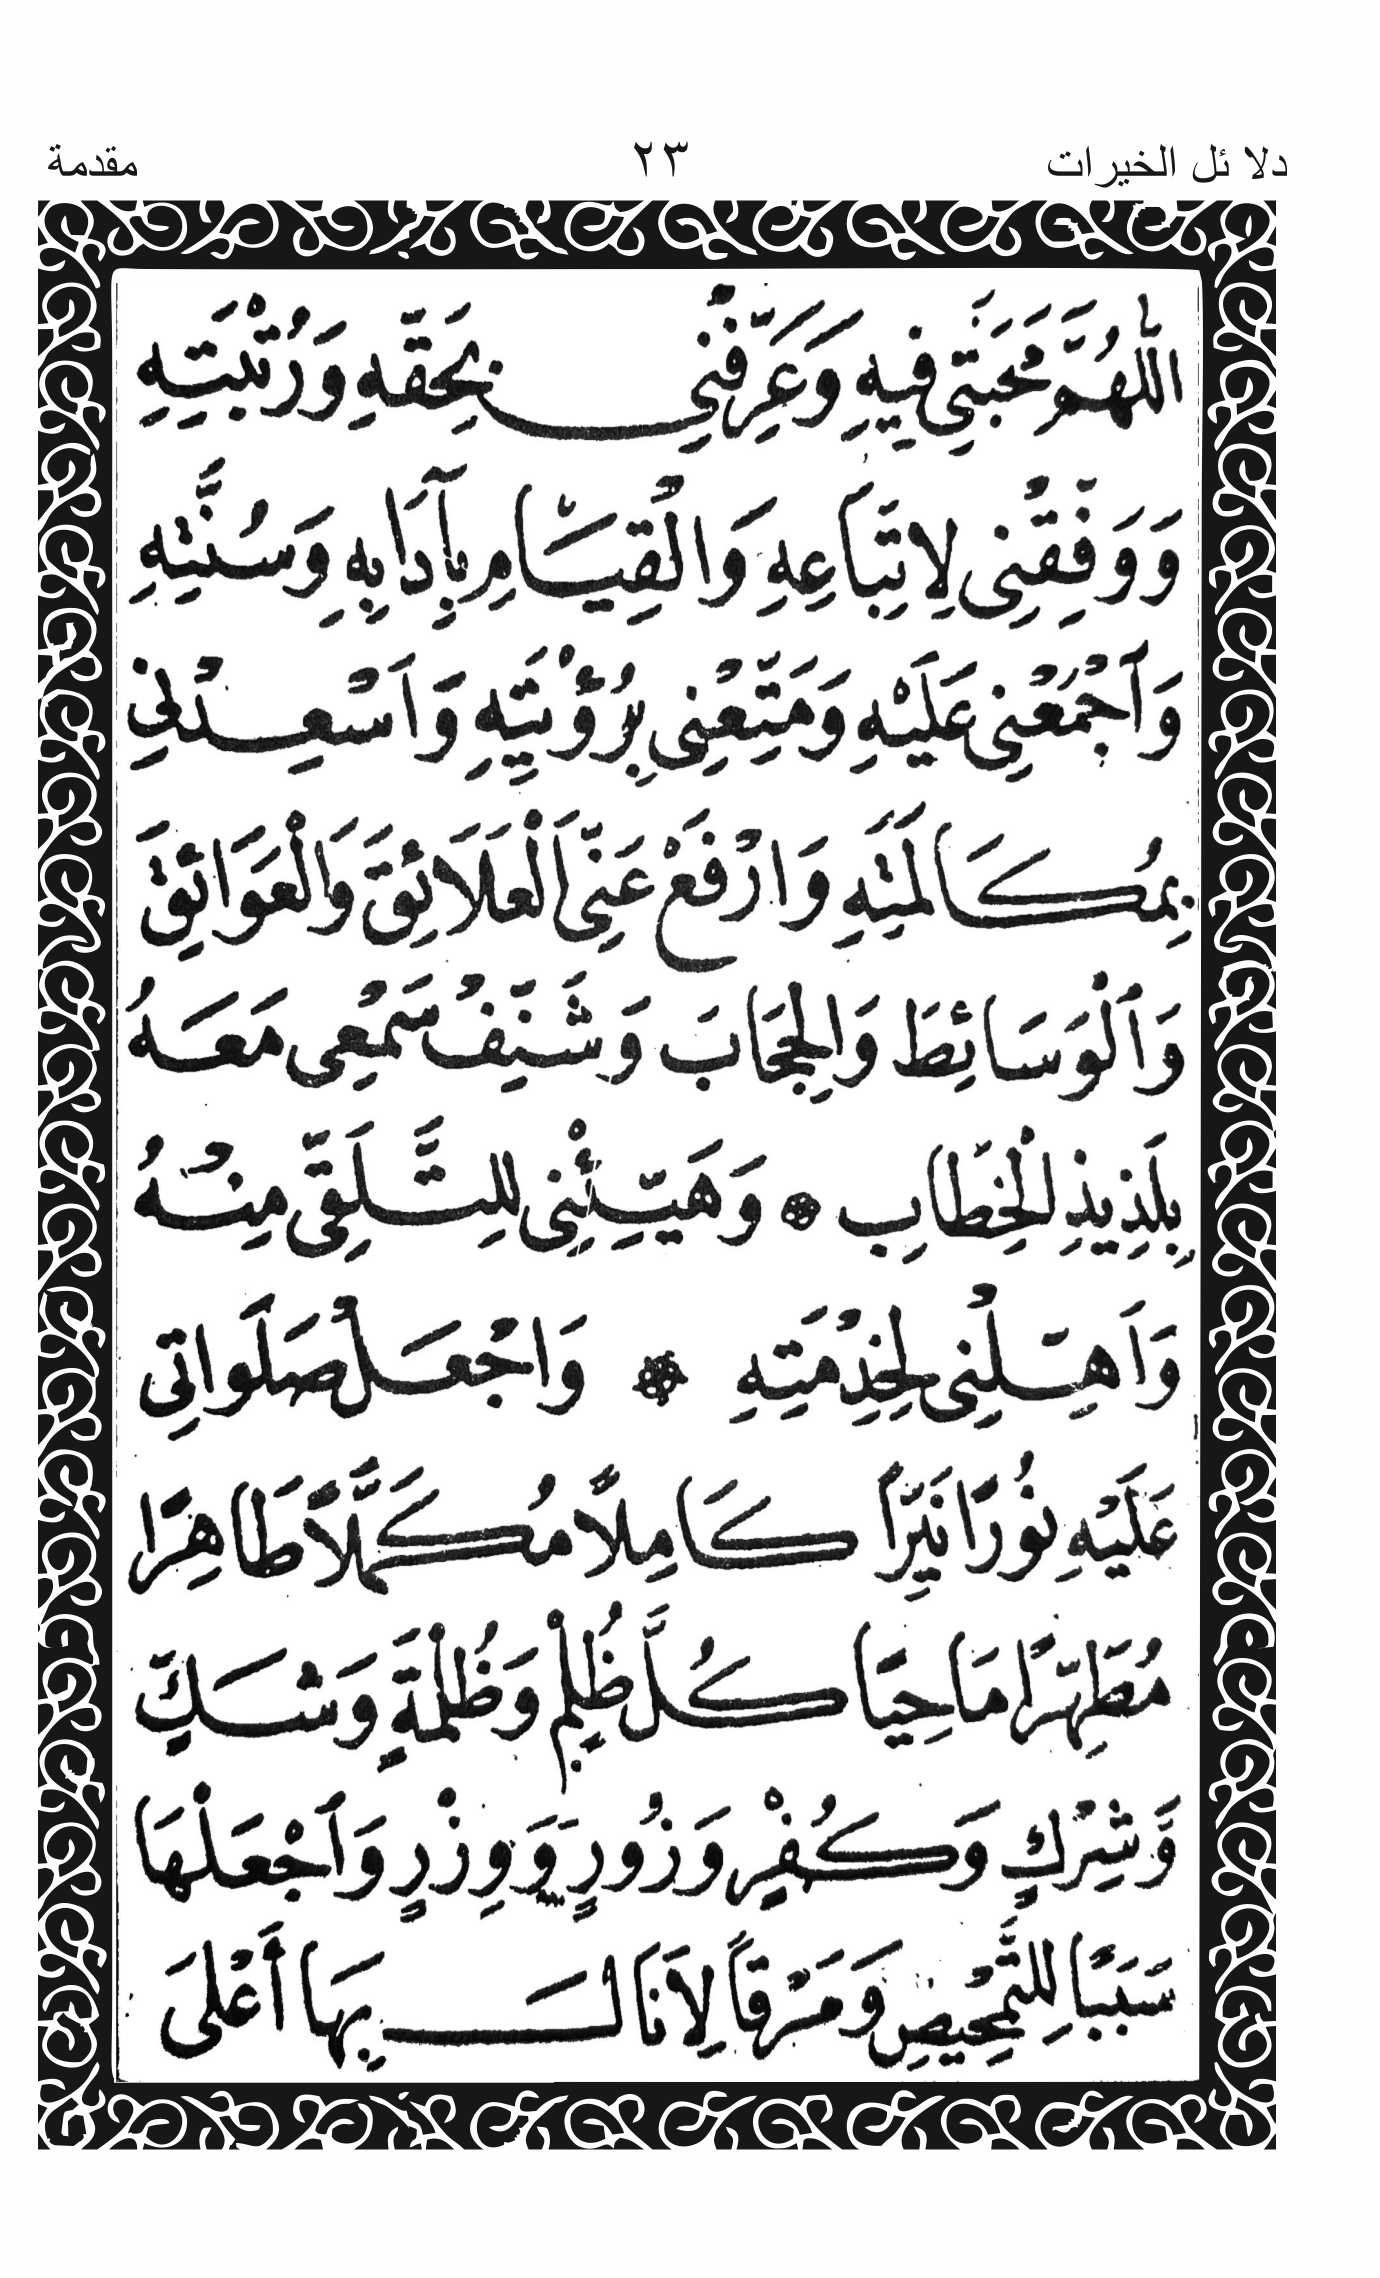 دلا ئل الخيرات ٢٣ مقدمة
اَللّٰهُمَّ مَحَبَّتِي فِيهِ وَعَرِّفْنِي بِحَقِّهِ وَرُتْبَتِهِ
وَوَفِّقْنِى لِاتِّبَاعِهِ وَالْقِيَامِ بِآدَابِهِ وَسُنَّتِهِ
وَاَجْمَعْنِى عَلَيْهِ وَمَتِّعْنِى بِرُؤْيَتِهِ وَاَسْعِدْنِي
بِمُكَالَمَتِهِ وَارْفَعْ عَنِّى الْعَلَائِقَ وَالْعَوَائِقَ
وَالْوَسَائِطَ وَالْحِجَابَ وَشَنِّفْ سَمْعِى مَعَهُ
بِلَذِيذِ الْخِطَابِ ❁ وَهَيِّئْنِى لِلتَّلَقِّى مِنْهُ
وَاَهِّلْنِى لِخِدْمَتِهِ ❁ وَاجْعَلْ صَلَوَاتِى
عَلَيْهِ نُورًا نَيِّرًا كَامِلًا مُكَمَّلًا طَاهِرًا
مُطَهِّرًا مَاحِيًا كُلَّ ظُلْمٍ وَظُلْمَةٍ وَشَكٍّ
وَّشِرْكٍ وَكُفْرٍ وَزُورٍ وَوِزْرٍ وَاَجْعَلْهَا
سَبَبًا لِلتَّمْحِيْصِ وَمَرْقًا لِاَنَالَ بِهَا أَعْلَى